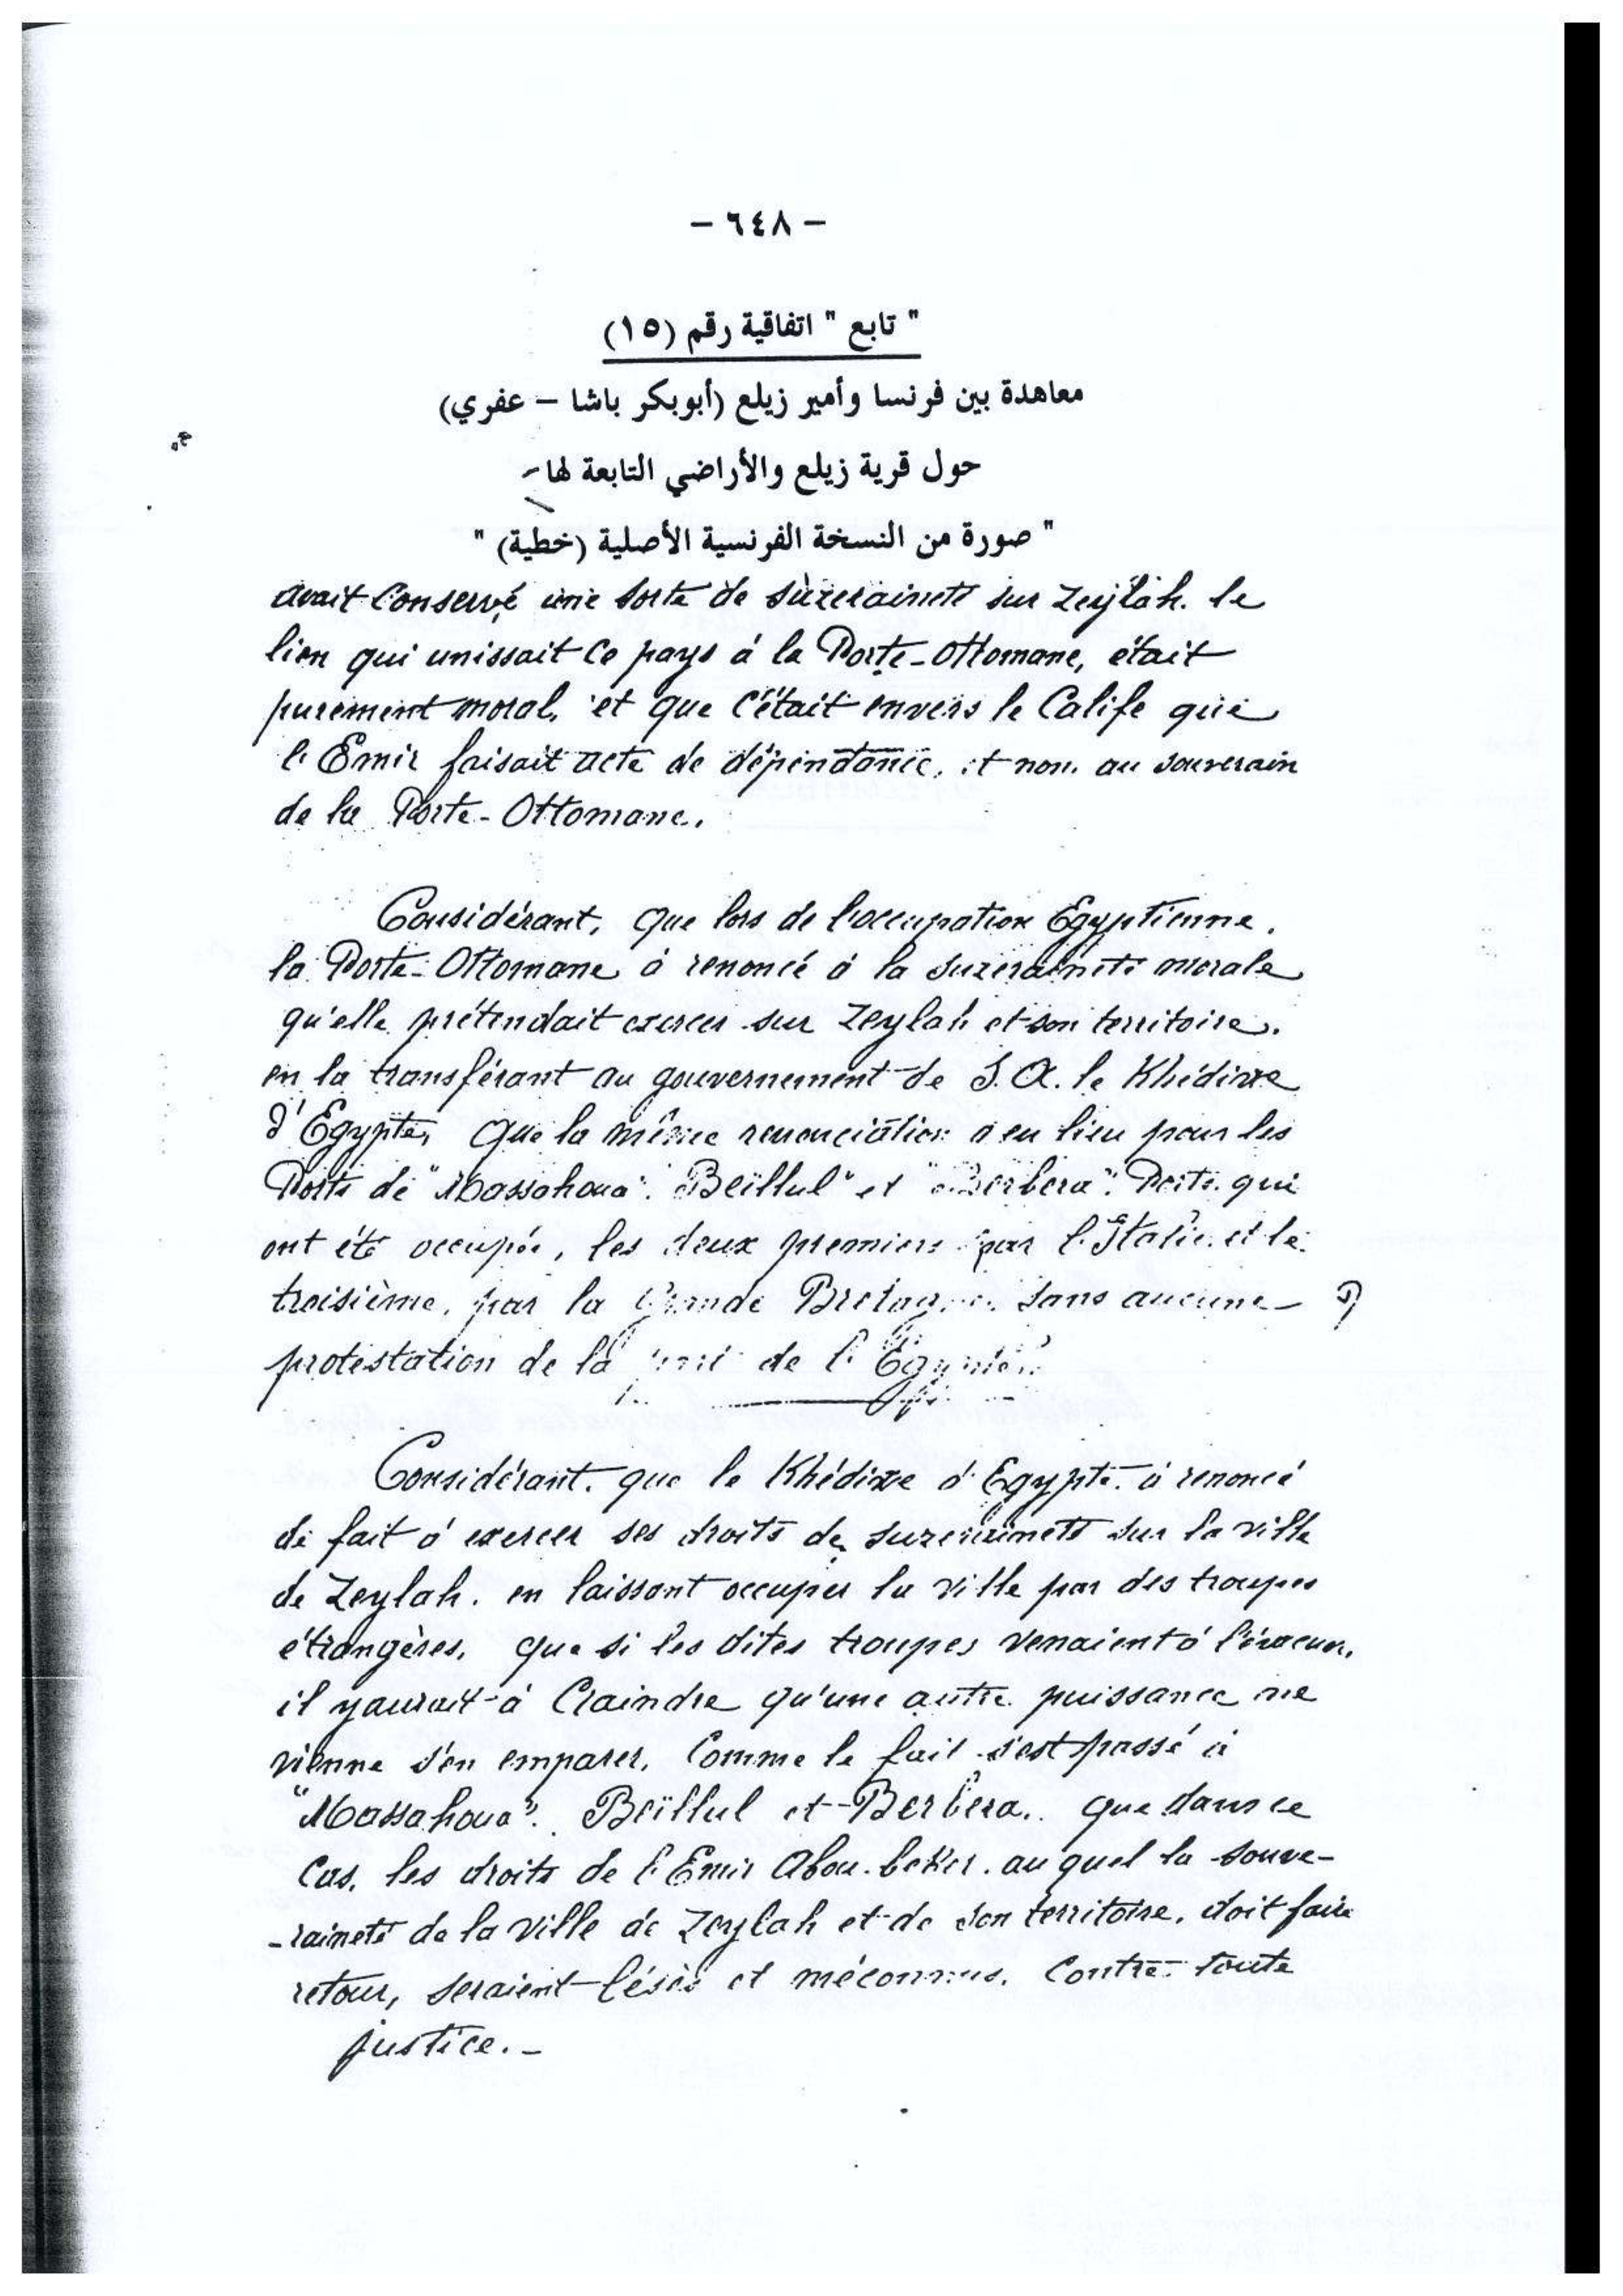 – ٦٤٨ –
" تابع " اتفاقية رقم (١٥)
معاهدة بين فرنسا وأمير زيلع (أبوبكر باشا – عفري)
حول قرية زيلع والأراضي التابعة لها-
" صورة من النسخة الفرنسية الأصلية (خطية) "
avait conservé une sorte de suzeraineté sur Zeylah. le
lien qui unissait ce pays à la Porte-Ottomane, était
purement moral, et que c'était envers le Calife que
l'Emir faisait acte de dépendance, et non au souverain
de la Porte-Ottomane.
Considérant, que lors de l'occupation Egyptienne,
la Porte-Ottomane à renoncé à la suzeraineté morale
qu'elle prétendait exercer sur Zeylah et son territoire,
en la transférant au gouvernement de S. A. le Khédive
d'Egypte, que la même renonciation a eu lieu pour les
Ports de "Massahoua". "Beïllul" et "Berbera". Ports qui
ont été occupés, les deux premiers par l'Italie et le
troisième, par la Grande Bretagne sans aucune
protestation de la part de l'Egypte.
Considérant que le Khédive d'Egypte à renoncé
de fait à exercer ses droits de suzeraineté sur la ville
de Zeylah. en laissant occuper la ville par des troupes
étrangères, que si les dites troupes venaient à l'évacuer,
il y aurait à craindre qu'une autre puissance ne
vienne s'en emparer, comme le fait s'est passé à
"Massahoua". Beïllul et Berbera. que dans ce
cas, les droits de l'Emir Abou-beker. au quel la souve-
-raineté de la ville de Zeylah et de son territoire, doit faire
retour, seraient lésés et méconnus. contre toute
justice. –